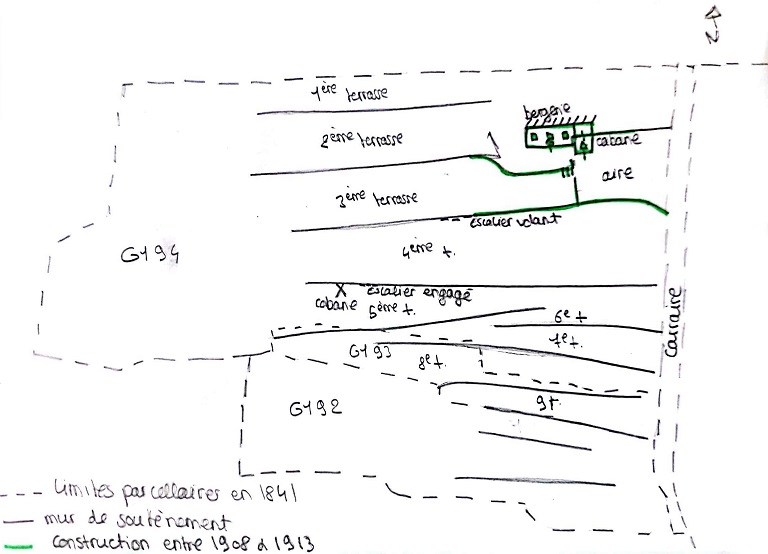 1ère terrasse
bergerie
2ème terrasse
cabane
aire
3ème terrasse
escalier volant
G194
4ème t.
X escalier engagé
cabane 5ème t.
6e t
7e t.
G193
8e t.
carraire
G192
9 t.
limites parcellaires en 1841
mur de soutènement
construction entre 1908 à 1913